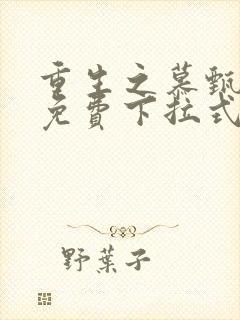 重生之慕甄
免費下拉式
野葉子